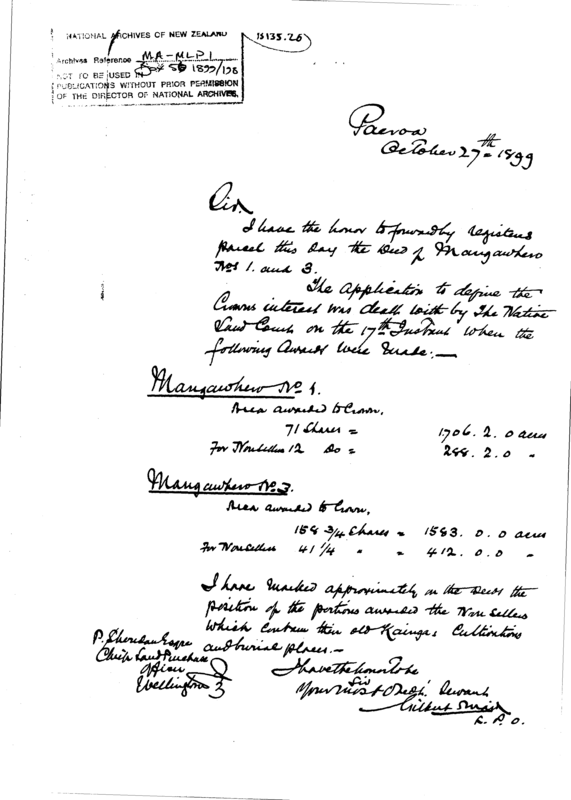 NATIONAL ARCHIVES OF NEW ZEALAND
Archives Reference MA-MLP1
Box 56 1899/138
NOT TO BE USED IN
PUBLICATIONS WITHOUT PRIOR PERMISSION
OF THE DIRECTOR OF NATIONAL ARCHIVES.
15135.26
Paeroa
October 27th 1899
Sir,
I have the honor to forward by registered
parcel this day the Deed of Mangawhero
Nos 1. and 3.
The application to define the
Crowns interest was dealt with by The Native
Land Court on the 17th Instant when the
following Awards were made:—
Mangawhero No 1.
Area awarded to Crown,
71 Shares = 1706. 2. 0 acres
For Nonsellers 12 Do = 288. 2. 0 "
Mangawhero No 3.
Area awarded to Crown,
158 3/4 Shares = 1583. 0. 0 acres
For Nonsellers 41 1/4 " = 412. 0. 0 "
I have marked approximately on the Deeds the
position of the portions awarded the Non Sellers
which contain their old Kaingas Cultivations
and burial places.—
I have the honor to be
Sir
Your most Obedt. Servant
Gilbert Mair
L. P. O.
P. Sheridan Esqre
Chief Land Purchase
Officer
Wellington